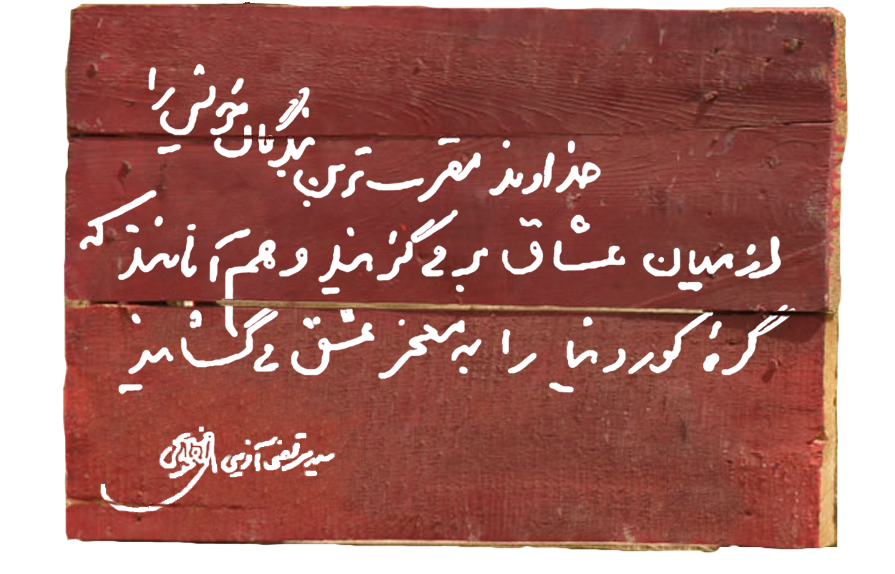 خداوند مقرب‌ترین بندگان خویش را
از میان عشاق بر می‌گزیند و هم آنانند که
گرهٔ کور دنیا را به معجز عشق می‌گشایند
سید مرتضی آوینی